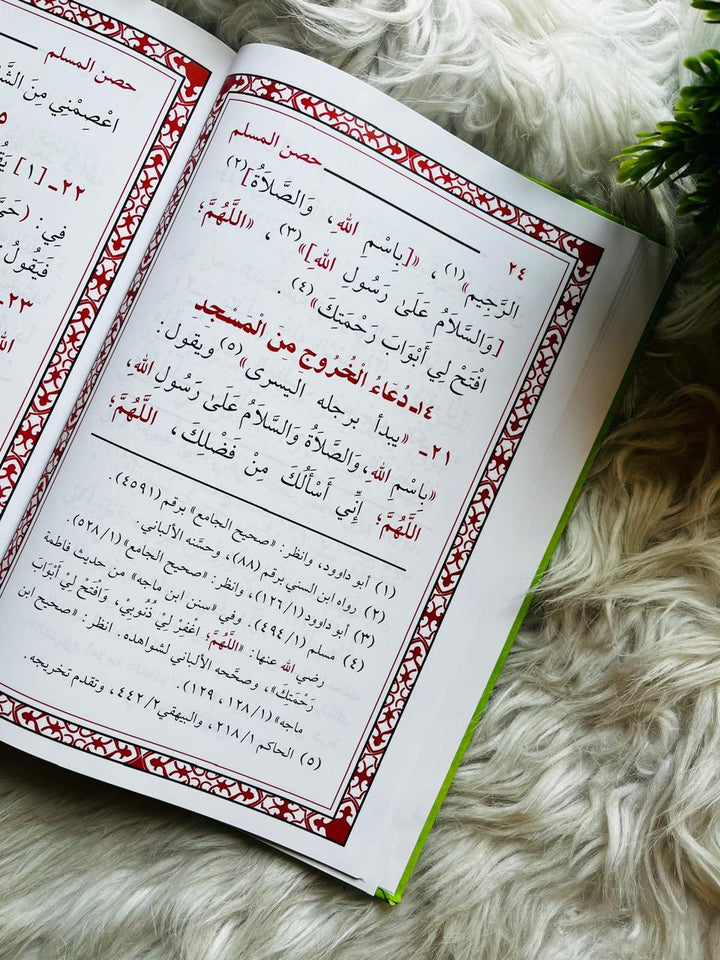 ٢٤ حصن المسلم
الرَّجِيمِ»(١)، «[بِاسْمِ اللهِ، وَالصَّلَاةُ](٢)
[وَالسَّلَامُ عَلَىٰ رَسُولِ اللهِ]»(٣)، «اللَّهُمَّ؛
افْتَحْ لِي أَبْوَابَ رَحْمَتِكَ»(٤).
١٤ـ دُعَاءُ الْخُرُوجِ مِنَ الْمَسْجِدِ
٢١ـ «يبدأ برجله اليسرى»(٥) ويَقول:
«بِاسْمِ اللهِ، وَالصَّلَاةُ وَالسَّلَامُ عَلَىٰ رَسُولِ اللهِ،
اللَّهُمَّ؛ إِنِّي أَسْأَلُكَ مِنْ فَضْلِكَ، اللَّهُمَّ؛
(١) أبو داوود، وانظر: «صحيح الجامع» برقم (٤٥٩١).
(٢) رواه ابن السني برقم (٨٨)، وحسَّنه الألباني.
(٣) أبو داوود (١/١٢٦)، وانظر: «صحيح الجامع» (١/٥٢٨).
(٤) مسلم (١/٤٩٤). وفي «سنن ابن ماجه» من حديث فاطمة
رضي الله عنها: «اللَّهُمَّ؛ اغْفِرْ لِي ذُنُوبِيْ، وَافْتَحْ لِيْ أَبْوَابَ
رَحْمَتِكَ»، وصحَّحه الألباني لشواهده. انظر: «صحيح ابن
ماجه» (١/١٢٨، ١٢٩).
(٥) الحاكم ١/٢١٨، والبيهقي ٢/٤٤٢، وتقدم تخريجه.
حصن المسلم
اعْصِمْنِي مِنَ
٢٢ـ [١]
فِي:
فَيَقُولُ
٢٣ـ